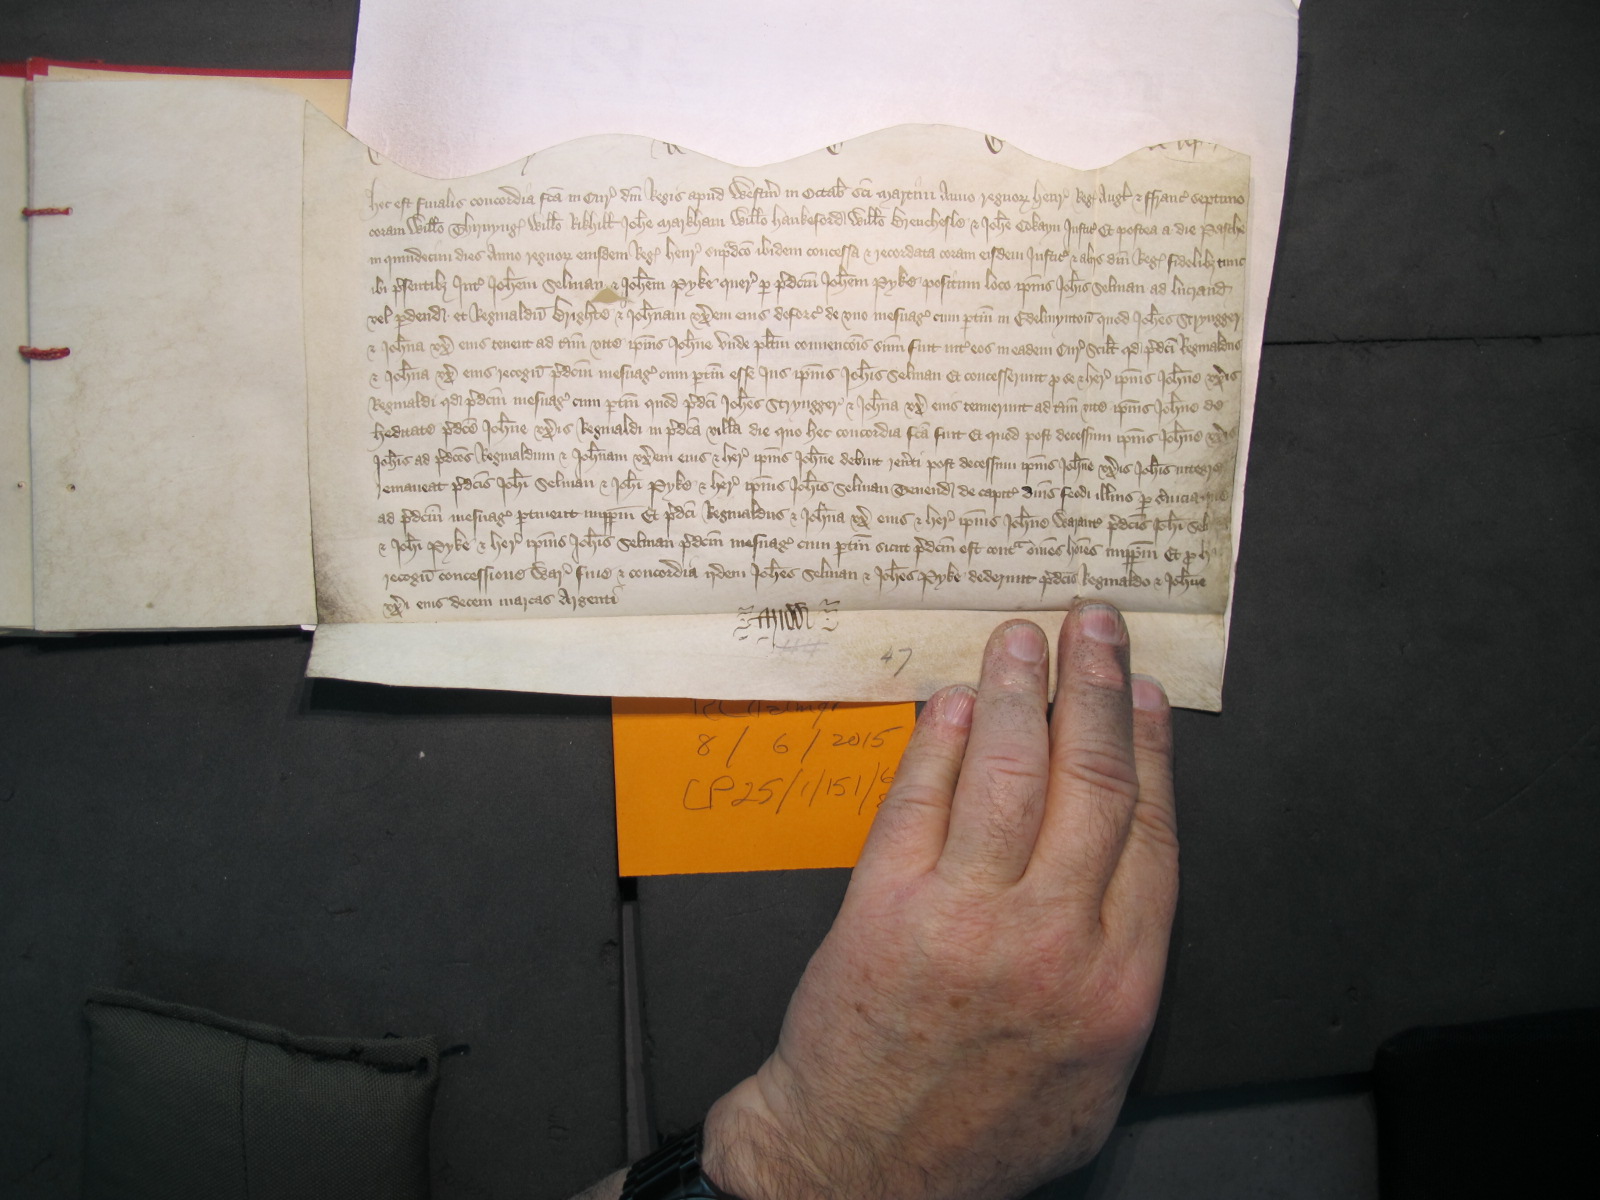 Hec est finalis concordia fc̄a in Cur̄ dn̄i Regis apud Westm̄ in Octab̄ sc̄i Martini Anno regnoꝝ Henr̄ Reḡ Angl̄ & ffranc̄ septimo
coram Will̄o Thirnynḡ Will̄o Rikhill Joh̄e Markham Will̄o Hankeford Will̄o Brenchesle & Joh̄e Cokayn Justic̄ Et postea a die Pasche
in quindecim dies Anno regnoꝝ eiusdem Reḡ Henr̄ sup̄dc̄o ibidem concessa & recordata coram eisdem Justic̄ & aliis dn̄i Reḡ fidelibȝ tunc
ibi p̄sentibȝ Int̄ Joh̄em Selman & Joh̄em Pyke quer̄ p p̄dc̄m Joh̄em Pyke positum loco ip̄ius Joh̄is Selman ad lucrand
vel p̄dend et Reginaldū Brighte & Joh̄nam vx̄em eius deforc̄ de vno mesuaḡ cum p̄tin̄ in Edelmynton̄ quod Joh̄es Strynger
& Joh̄na vx̄ eius tenent ad t̄m vite ip̄ius Joh̄ne Vnde pl̄itm convenc̄ois sum̄ fuit int̄ eos in eadem Cur̄ Scil̄t qd p̄dc̄i Reginaldus
& Joh̄na vx̄ eius recogn̄ p̄dc̄m mesuaḡ cum p̄tin̄ esse Jus ip̄ius Joh̄is Selman Et concesserunt p se & her̄ ip̄ius Joh̄ne vx̄is
Reginaldi qd p̄dc̄m mesuaḡ cum p̄tin̄ quod p̄dc̄i Joh̄es Strynger & Joh̄na vx̄ eius tenuerunt ad t̄m vite ip̄ius Joh̄ne de
heditate p̄dc̄e Joh̄ne vx̄is Reginaldi in p̄dc̄a villa die quo hec concordia fc̄a fuit Et quod post decessum ip̄ius Joh̄ne vx̄is
Joh̄is ad p̄dc̄os Reginaldum & Joh̄nam vx̄em eius & her̄ ip̄ius Joh̄ne debuit rev̄ti post decessum ip̄ius Joh̄ne vx̄is Joh̄is integre
remaneat p̄dc̄is Joh̄i Selman & Joh̄i Pyke & her̄ ip̄ius Joh̄is Selman Tenend de capit̄ Dn̄is feodi illius p s̄uicia que
ad p̄dc̄m mesuaḡ p̄tinent imp̄p̄m Et p̄dc̄i Reginaldus & Joh̄na vx̄ eius & her̄ ip̄ius Joh̄ne Warant̄ p̄dc̄is Joh̄i Sel
& Joh̄i Pyke & her̄ ip̄ius Joh̄is Selman p̄dc̄m mesuaḡ cum p̄tin̄ sicut p̄dc̄m est cont̄ om̄es ho̅i̅es imp̄p̄m Et p h
recogn̄ concessione War̄ fine & concordia ijdem Joh̄es Selman & Joh̄es Pyke dederunt p̄dc̄is Reginaldo & Joh̄ne
vx̄i eius decem marcas Argenti
Midd
47
8 / 6 / 2015
CP25/1/151/